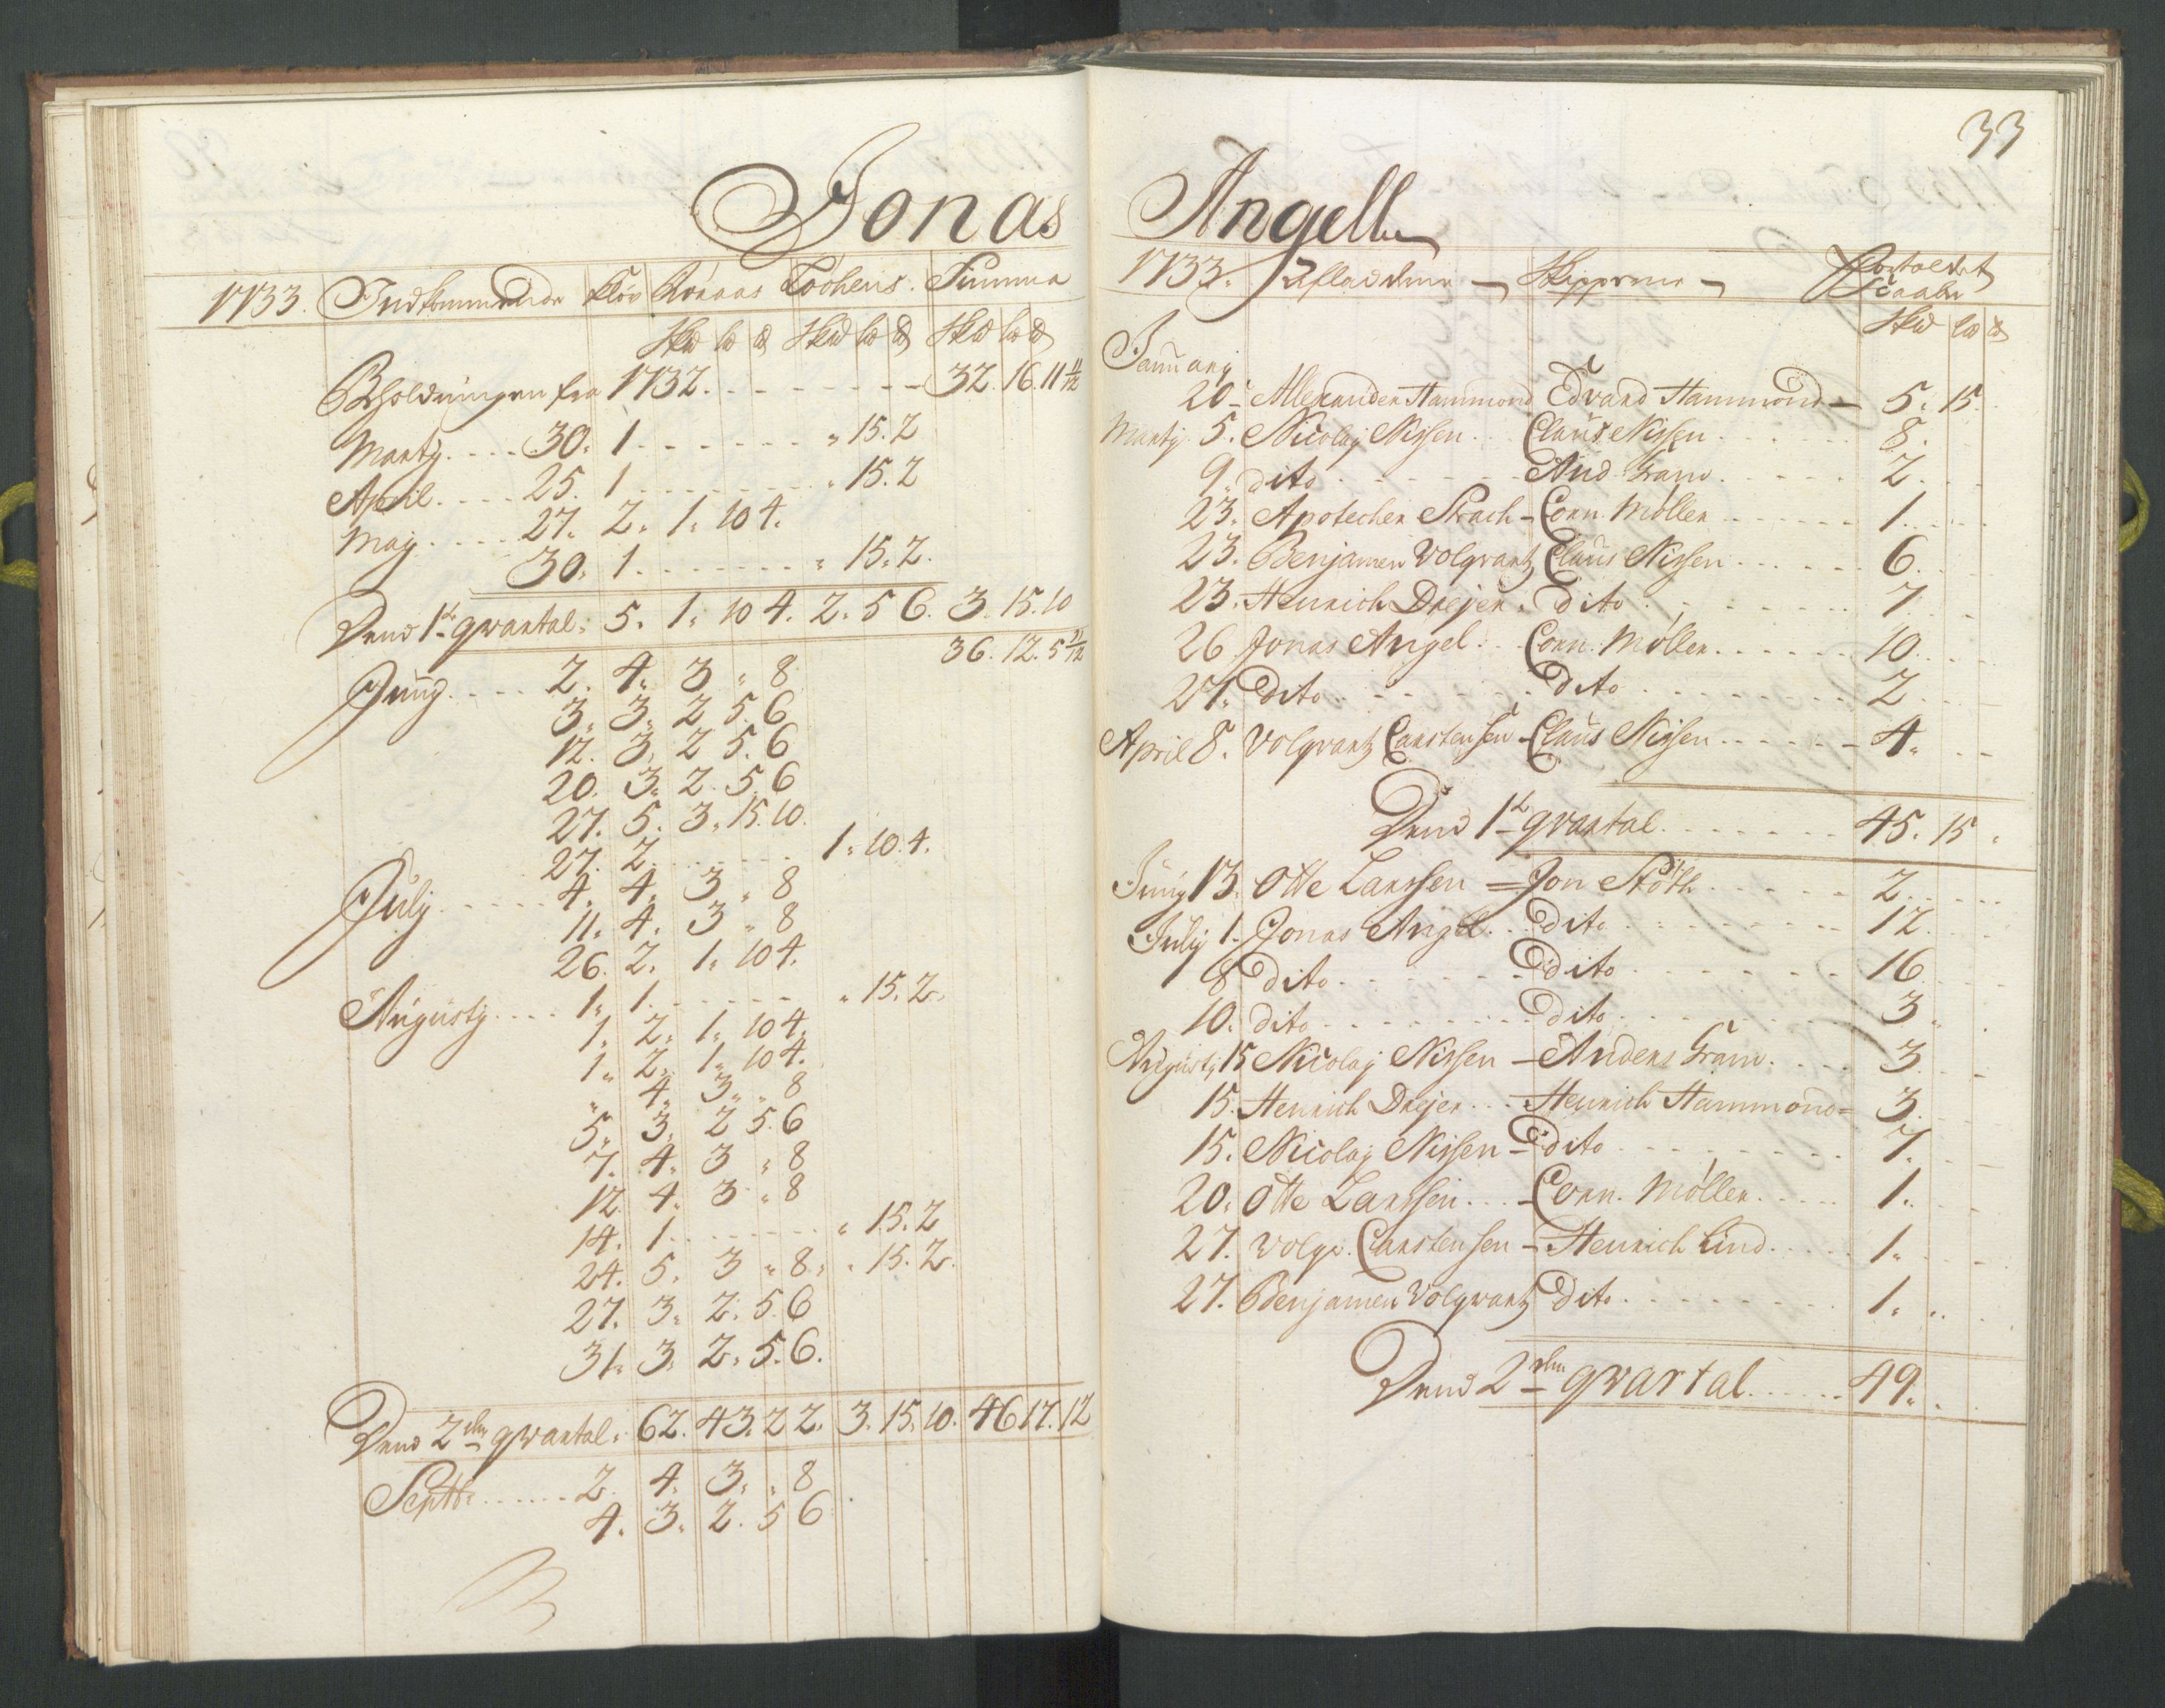 Jonas
1733. Indkommende Kløv Røraas Løchens. Summa
Sk℔ l℔ ℔ Sk℔ l℔ ℔ Sk℔ l℔ ℔
Beholdningen fra 1732. - - - - - - - 32. 16. 11 11/12
Martij. . . . 30. 1. - - - - - - " 15. 2
April. . . . 25. 1. - - - - - - " 15. 2
Maij. . . . 27. 2. 1. 10 4.
30. 1. - - - - - - " 15. 2.
Dend 1te qvartal. 5. 1. 10 4. 2. 5 6. 3. 15. 10
36. 12. 5 11/12
Junij. . . . 2. 4. 3 " 8
3. 3. 2 5. 6
12. 3. 2 5. 6
20. 3. 2. 5. 6
27. 5. 3. 15. 10.
27. 2. . . . . . . 1. 10. 4.
Julij . . . . . 4. 4. 3 " 8
11. 4. 3 " 8
26. 2. 1. 10 4.
Augustij. . . . 1. 1. - - - - - - " 15. 2.
1. 2. 1. 10 4.
1. 2. 1. 10 4.
" 4. 3. " 8
5. 3. 2 5. 6
7. 4. 3 " 8
12 4. 3 " 8
14. 1. . . . . . . " 15. 2
24. 5. 3 " 8. " 15. 2.
27. 3. 2. 5. 6
31. 3. 2. 5. 6.
Dend 2den qvartal. 62. 43. 2 2. 3. 15. 10. 46 17. 12
Septbr. . . . . . 2. 4. 3. " 8
4. 3. 2. 5 6
33
Angell
1733. Afladerne Skipperne Fortoldet Kaaber
Sk℔ l℔ ℔
Januarij
20. Allexander Hammond Edvard Hammond 5. 15.
Martij. 5. Nicolaj Nissen. . . Claus Nissen. . . . . 8.
9. dito. . . . . . And. Gram. . . . . . 2. . .
23. Apotecher Strach - Corn. Møller . . . . . . 1. . . .
23. Benjamen Volqvartz Claus Nissen. . . . . . 6. . .
23. Henrich Drejer. dito . . . . . . . . 7. . .
26 Jonas Angel. . . Corn. Møller. . . . . . 10. . .
27. Dito. . . . . . dito . . . . . . . . 2. . .
April 8. Volqvartz Carstensen - Claus Nissen. . . . . . 4. . .
Dend 1te qvartal. . . . . . . 45. 15 .
Junij 13. Otte Larssen = Jon Støth. . . . . . 2. . . .
Julij 1. Jonas Angel. . . dito . . . . . . . 12. . .
8 dito. . . . . . dito . . . . . . . 16. . .
10. dito. . . . . . dito. . . . . . . . 3. . .
Augustij 15 Nicolaj Nissen - Anders Gram. . . . . 3. . .
15. Henrich Drejer. . . Henrich Hammond = 3. . .
15. Nicolaj Nissen - dito . . . . . . . . 7. . .
20. Otte Larssen. . . - Corn. Møller. . . . . 1. . .
27. Volqv. Carstensen - Henrich Lind. . . . . 1. . .
27. Benjamen Volqvartz Dito. . . . . . . . 1. . .
Dend 2den qvartal. . . . . . 49. . .